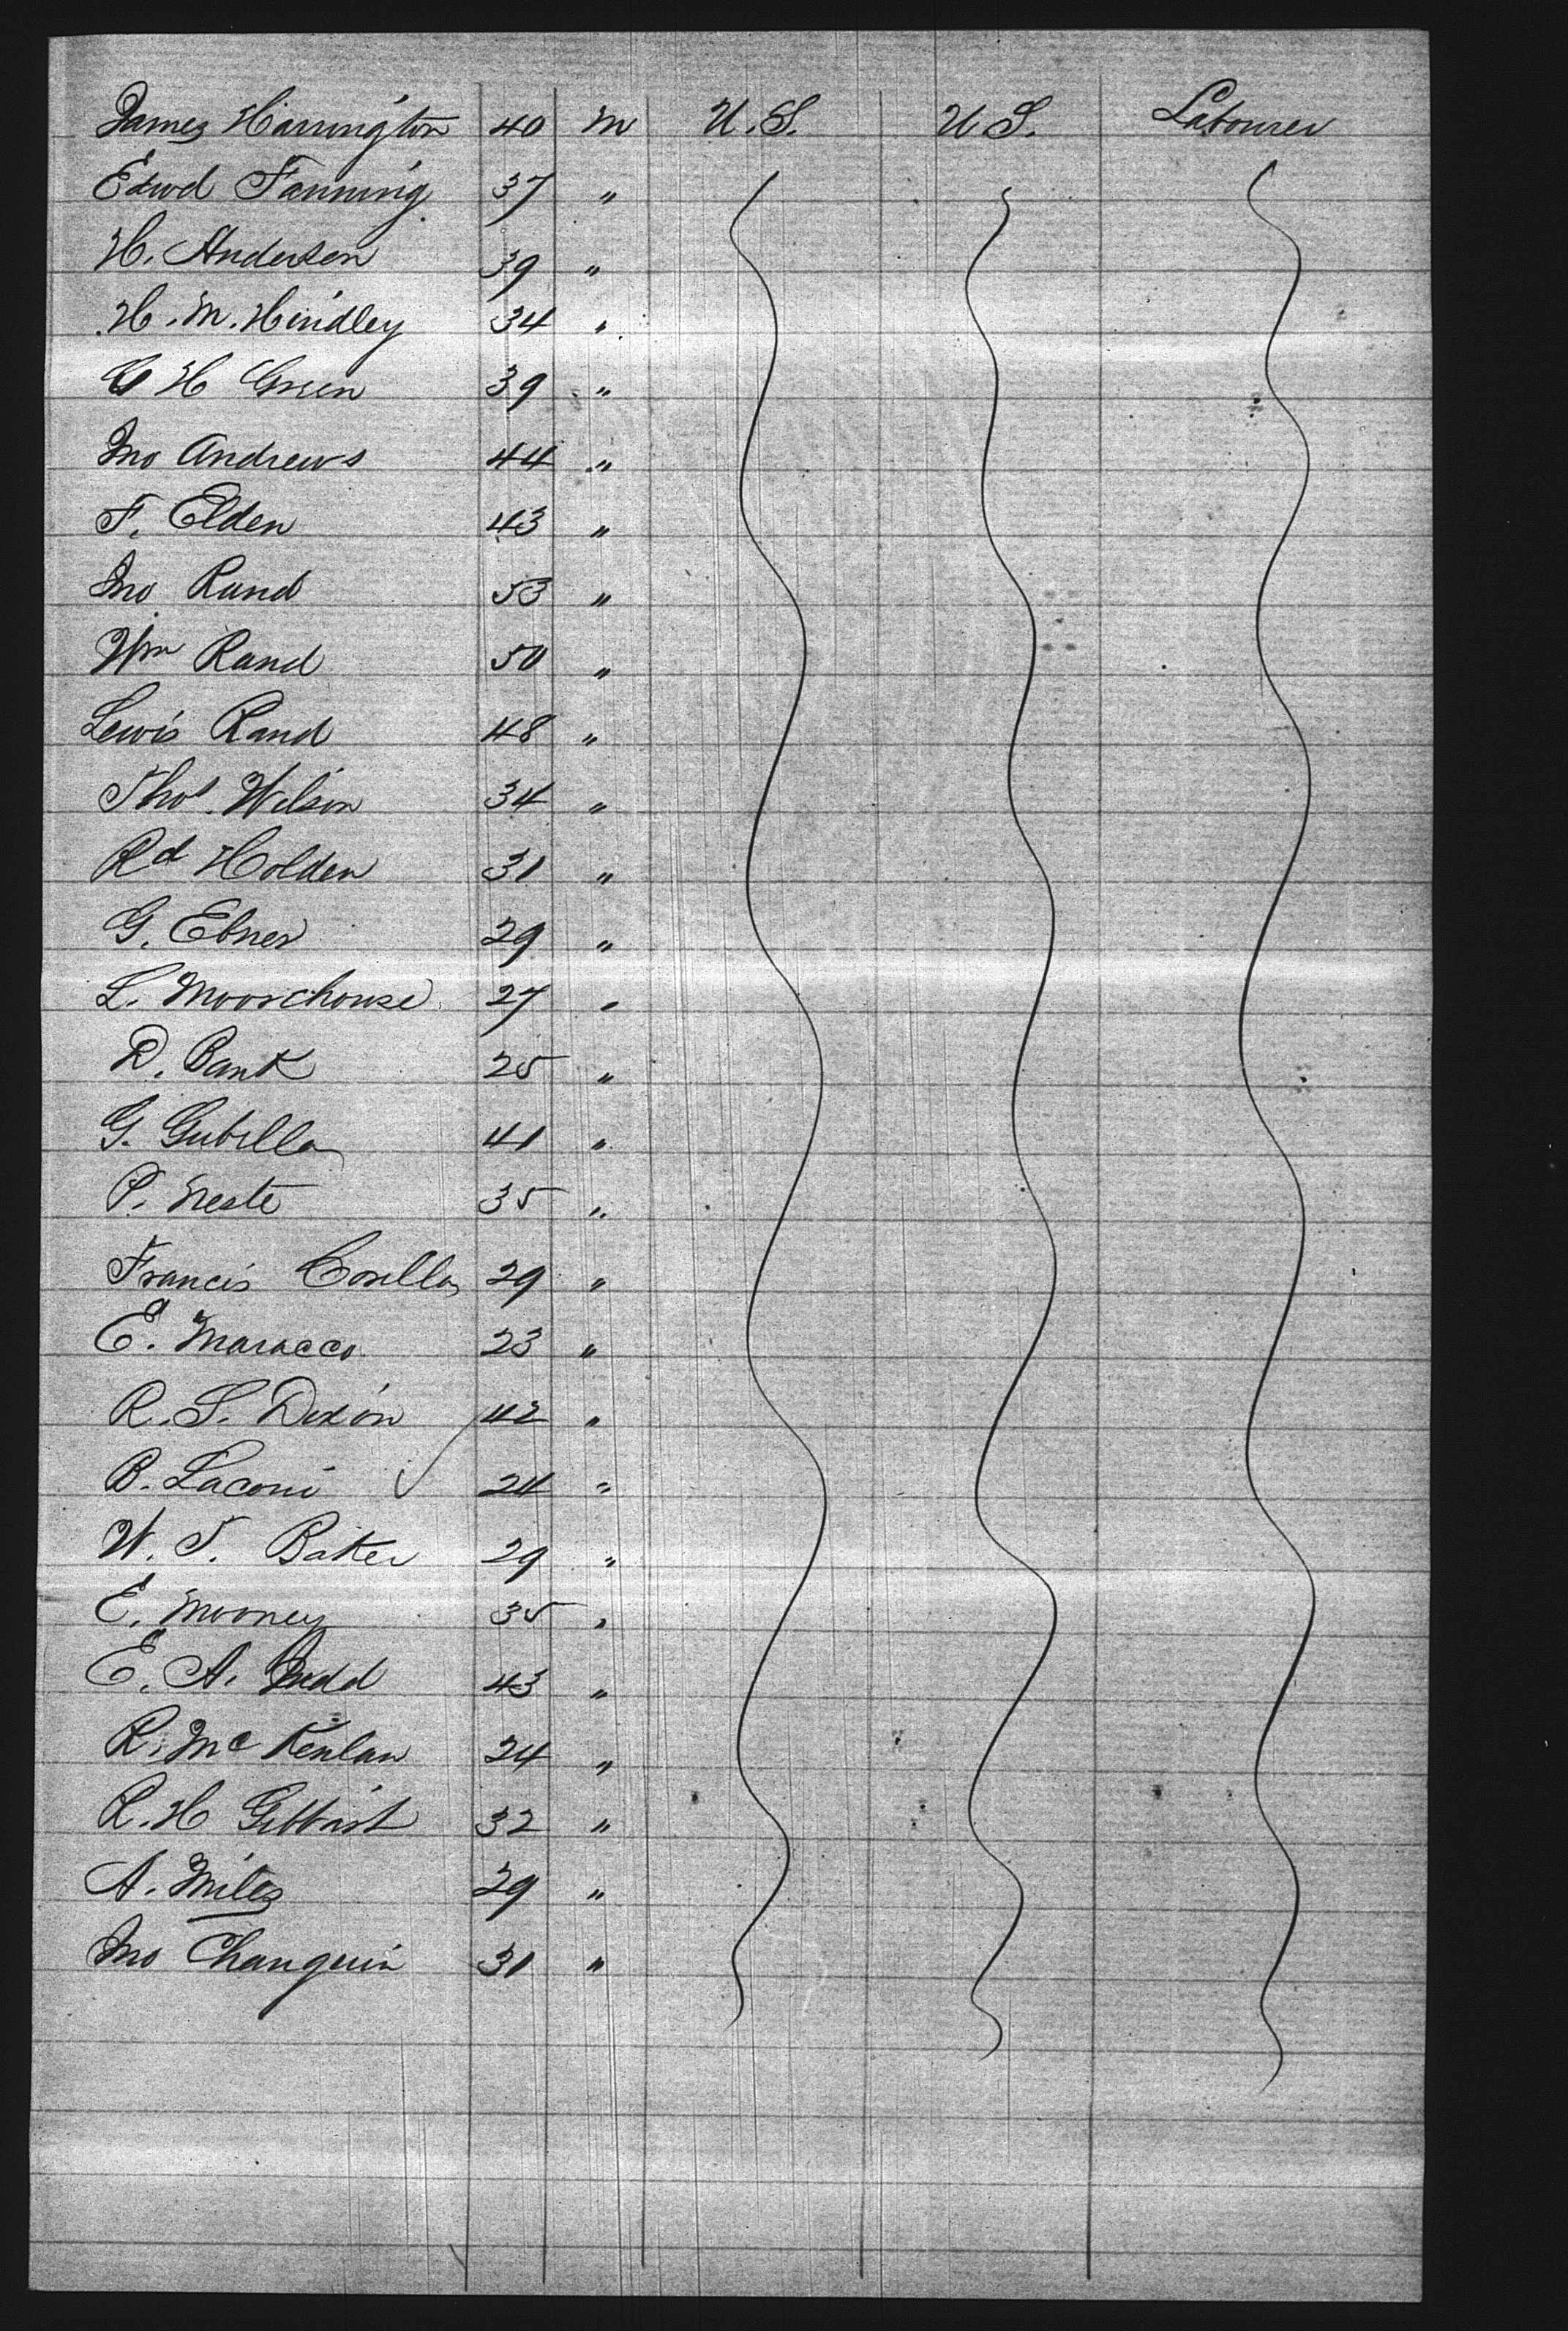 James Harrington 40 M U.S. U S. Labourer
Edwd Fanning 37 "
H. Andersen 39 "
H. M. Hindley 34 "
G H Green 39 "
Jno Andrews 44 "
F. Elden 43 "
Jno Rand 53 "
Wm Rand 50 "
Lewis Rand 48 "
Thos. Wilson 34 "
Rd Holden 31 "
G. Ebner 29 "
L. Moorehouse 27 "
D. Bank 25 "
G. Gubella 41 "
P. Neste 35 "
Francis 29 "
E. Maracco 23 "
R. S. Dixon 42 "
B. Laconi ✓ 24 "
W. T. Baker 29 "
E. Mooney 35 "
E. A. Judd 43 "
R. Mc Kenlaw 24 "
R. H 32 "
A. Miles 29 "
Jno Changuin 31 "